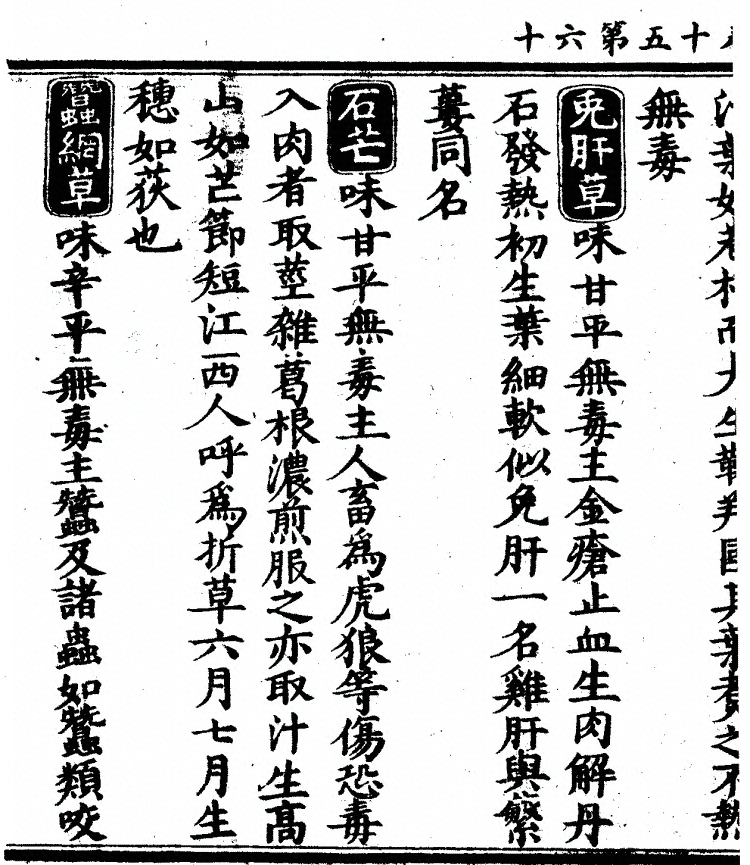 十五第六十
葉如大生國其葉之不熱
無毒
免肝草味甘平無毒主金瘡止血生肉解丹
石發熱初生葉細軟似免肝一名雞肝與蘩
蔞同名
石芒味甘平無毒主人畜爲虎狼等傷恐毒
入肉者取莖雜葛根濃煎服之亦取汁生高
山如芒節短江西人呼爲折草六月七月生
穗如荻也
蠶網草味辛平無毒主蠶及諸蟲如蠶類咬